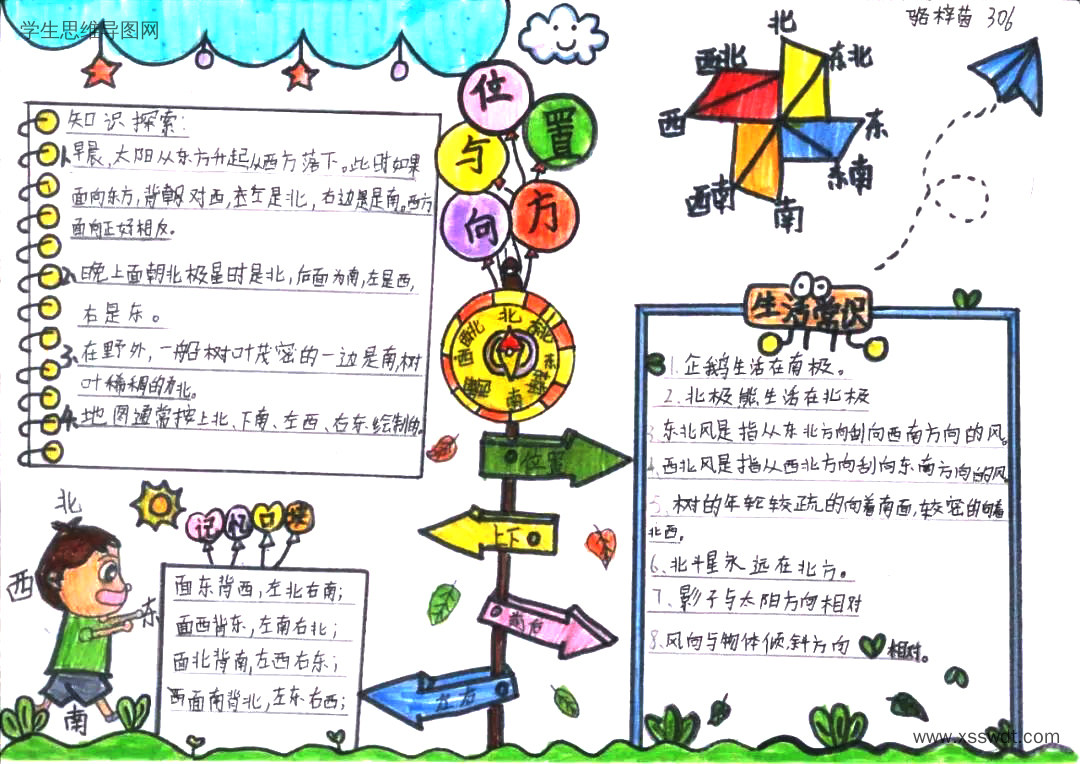 学生思维导图网
骆梓茵 306
位置与方向
北
东北
东
东南
南
西南
西
西北
知识探索:
1.早晨,太阳从东方升起从西方落下。此时如果
面向东方,背朝对西,左是北,右边是南。西方
面向正好相反。
2、晚上面朝北极星时是北,后面为南,左是西,
右是东。
3、在野外,一般树叶茂密的一边是南,树
叶稀稠的为北。
4、地图通常按上北、下南、左西、右东绘制的。
北
东北
东
东南
南
西南
西
西北
位置
上下
前后
左右
生活常识
1.企鹅生活在南极。
2、北极熊生活在北极
3、东北风是指从东北方向刮向西南方向的风。
4、西北风是指从西北方向刮向东南方向的风
5、树的年轮较疏的向着南面,较密的向着
北西。
6、北斗星永远在北方。
7、影子与太阳方向相对
8、风向与物体倾斜方向相对。
北
西
东
南
记忆口诀
面东背西,左北右南;
面西背东,左南右北;
面北背南,左西右东;
面南背北,左东右西;
www.xsswdt.com